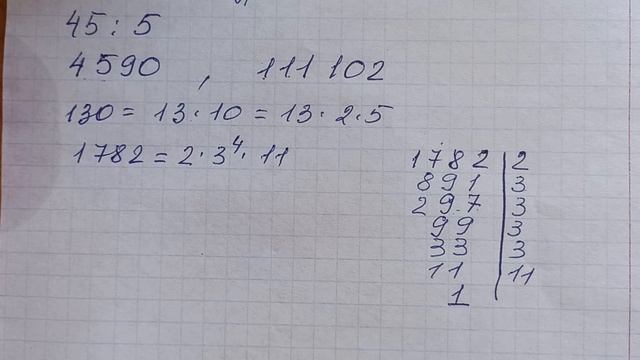 45 : 5
4590 , 111 102
130 = 13 · 10 = 13 · 2 · 5
1782 = 2 · 3⁴ · 11
1782 | 2
891 | 3
297 | 3
99 | 3
33 | 3
11 | 11
1